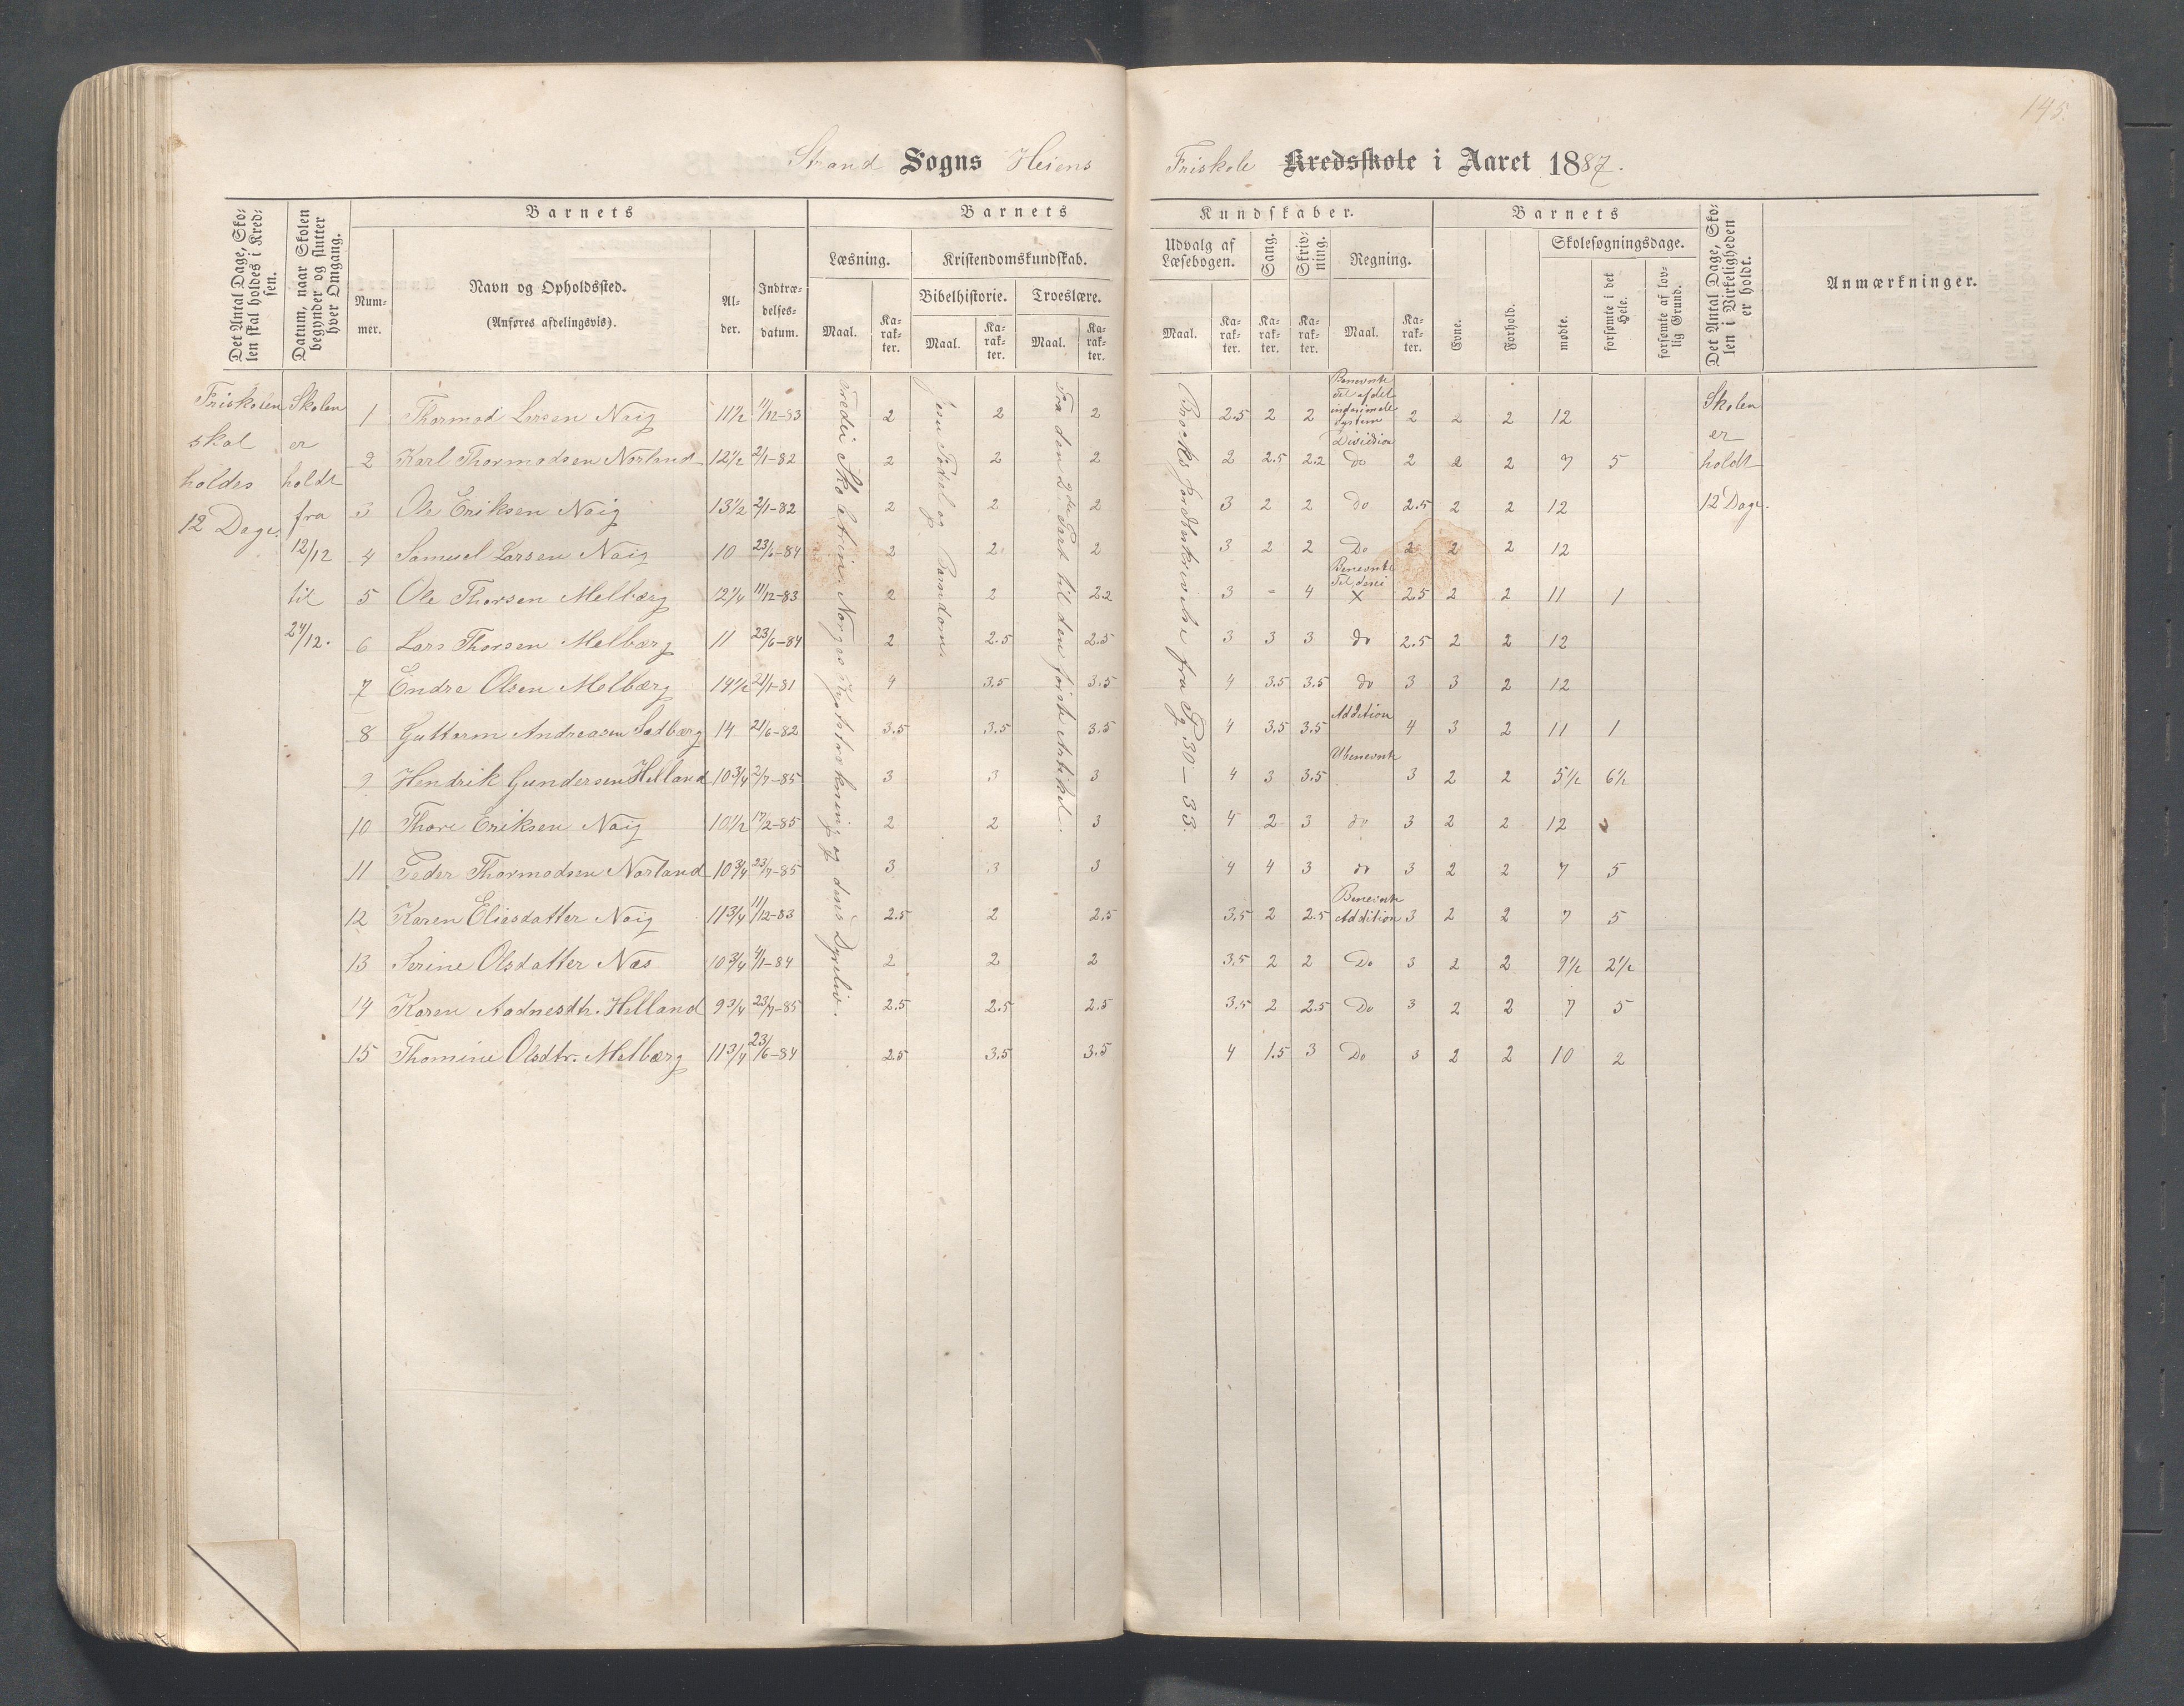 145.
Strand Sogns Heiens Friskole Kredsskole i Aaret 1887.
Det Antal Dage, Skolen skal holdes i Kredsen.
Datum, naar Skolen begynder og slutter hver Omgang.
Barnets
Nummer.
Navn og Opholdssted.
(Anføres afdelingsvis).
Alder.
Indtrædelsesdatum.
Barnets Kundskaber.
Læsning.
Maal.
Karakter.
Kristendomskundskab.
Bibelhistorie.
Maal.
Karakter.
Troeslære.
Maal.
Karakter.
Udvalg af Læsebogen.
Maal.
Karakter.
Sang.
Karakter.
Skrivning.
Karakter.
Regning.
Maal.
Karakter.
Barnets
Evne.
Forhold.
Skolesøgningsdage.
mødte.
forsømte i det Hele.
forsømte af lovlig Grund.
Det Antal Dage, Skolen i Virkeligheden er holdt.
Anmærkninger.
Friskolen skal holdes 12 Dage.
Skolen er holdt fra 12/12 til 24/12.
Jesu Fødsel og Barndom.
Fra den 2den Part til den første Artikel.
fra Pg 30-33.
Skolen er holdt 12 Dage.
1 Thormod Larsen Naig 11 1/2 11/12-83 2 2 2 2.5 2 2 Division 2 2 2 12
2 Karl Thormodsen Norland 12 1/2 2/1-82 2 2 2 2 2.5 2.2 do 2 2 2 7 5
3 Ole Eriksen Naig 13 1/2 2/1-82 2 2 2 3 2 2 do 2.5 2 2 12
4 Samuel Larsen Naig 10 23/6-84 2 2 2 3 2 2 Do 2 2 2 12
5 Ole Thorsen Melbærg 12 1/4 11/12-83 2 2 2.2 3 - 4 X 2.5 2 2 11 1
6 Lars Thorsen Melbærg 11 23/6-84 2 2.5 2.5 3 3 3 do 2.5 2 2 12
7 Endre Olsen Melbærg 14 1/2 21/1-81 4 3.5 3.5 4 3.5 3.5 do 3 3 2 12
8 Guttorm Andreasen Sedbærg 14 21/6-82 3.5 3.5 3.5 4 3.5 3.5 Addition 4 3 2 11 1
9 Hendrik Gundersen Helland 10 3/4 2/7-85 3 3 3 4 3 3.5 Ubenevnte 3 2 2 5 1/2 6 1/2
10 Thore Eriksen Naig 10 1/2 17/2-85 2 2 3 4 2 3 do 3 2 2 12
11 Peder Thormodsen Norland 10 3/4 23/7-85 3 3 3 4 4 3 do 3 2 2 7 5
12 Karen Eliasdatter Naig 11 3/4 11/12-83 2.5 2 2.5 3.5 2 2.5 Benevnte Addition 3 2 2 7 5
13 Serine Olsdatter Næs 10 3/4 4/1-84 2 2 2 3.5 2 2 Do 3 2 2 9 1/2 2 1/2
14 Karen Aadnesdtr. Helland 9 3/4 23/7-85 2.5 2.5 2.5 3.5 2 2.5 Do 3 2 2 7 5
15 Thomine Olsdtr. Melbærg 11 3/4 23/6-84 2.5 3.5 3.5 4 1.5 3 Do 3 2 2 10 2